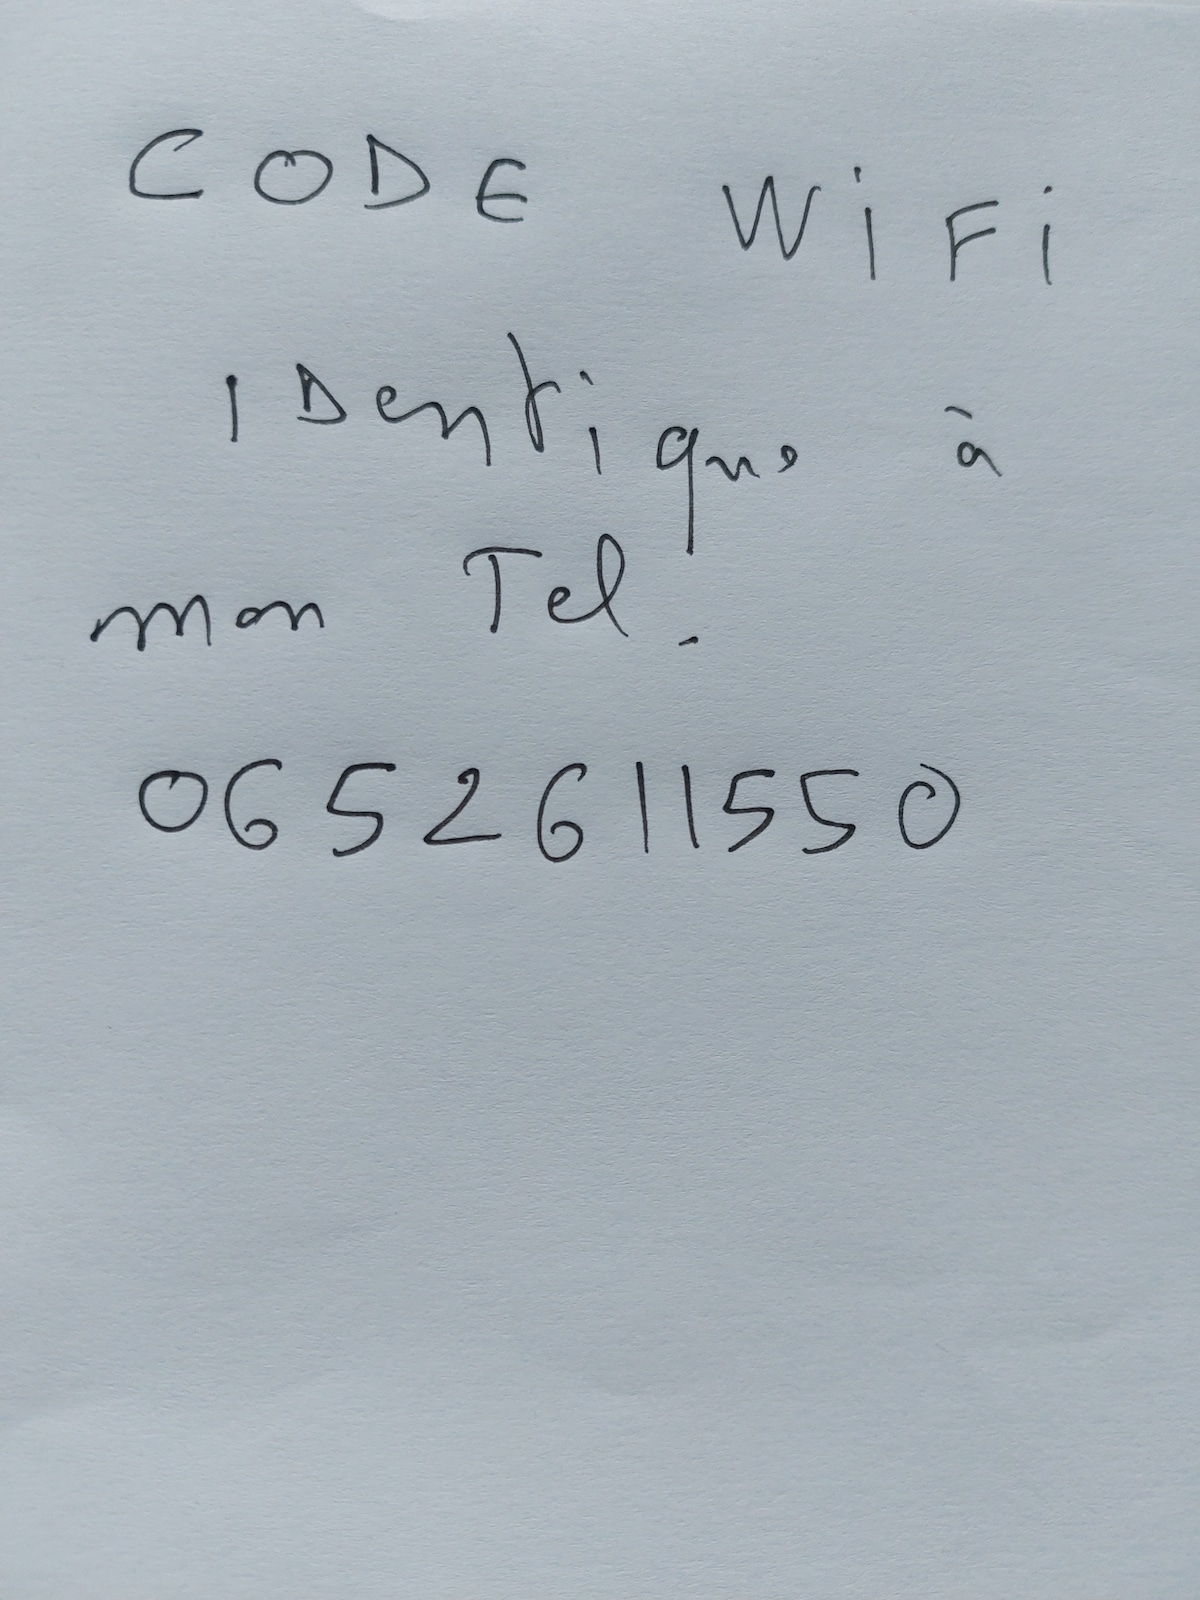 CODE WiFi
IDentique à
mon Tel.
0652611550